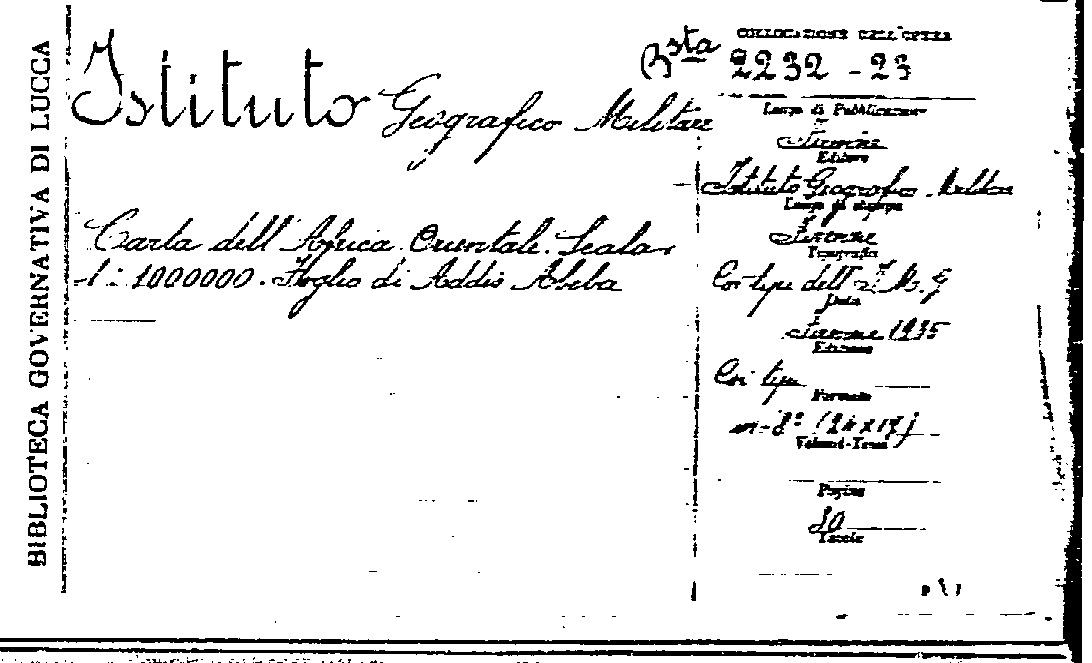 BIBLIOTECA GOVERNATIVA DI LUCCA
Istituto Geografico Militare
Carta dell'Africa Orientale. Scala
1:1000000. Foglio di Addis Abeba
COLLOCAZIONE DELL'OPERA
Bsta 2232-23
Luogo di Pubblicazione
Firenze
Editore
Istituto Geografico Militare
Luogo di stampa
Firenze
Tipografia
Coi tipi dell'I. M. G
Data
Firenze 1935
Edizione
Coi tipi
Formato
in-8° (24x17)
Volumi-Tomi
Pagine
Tavole